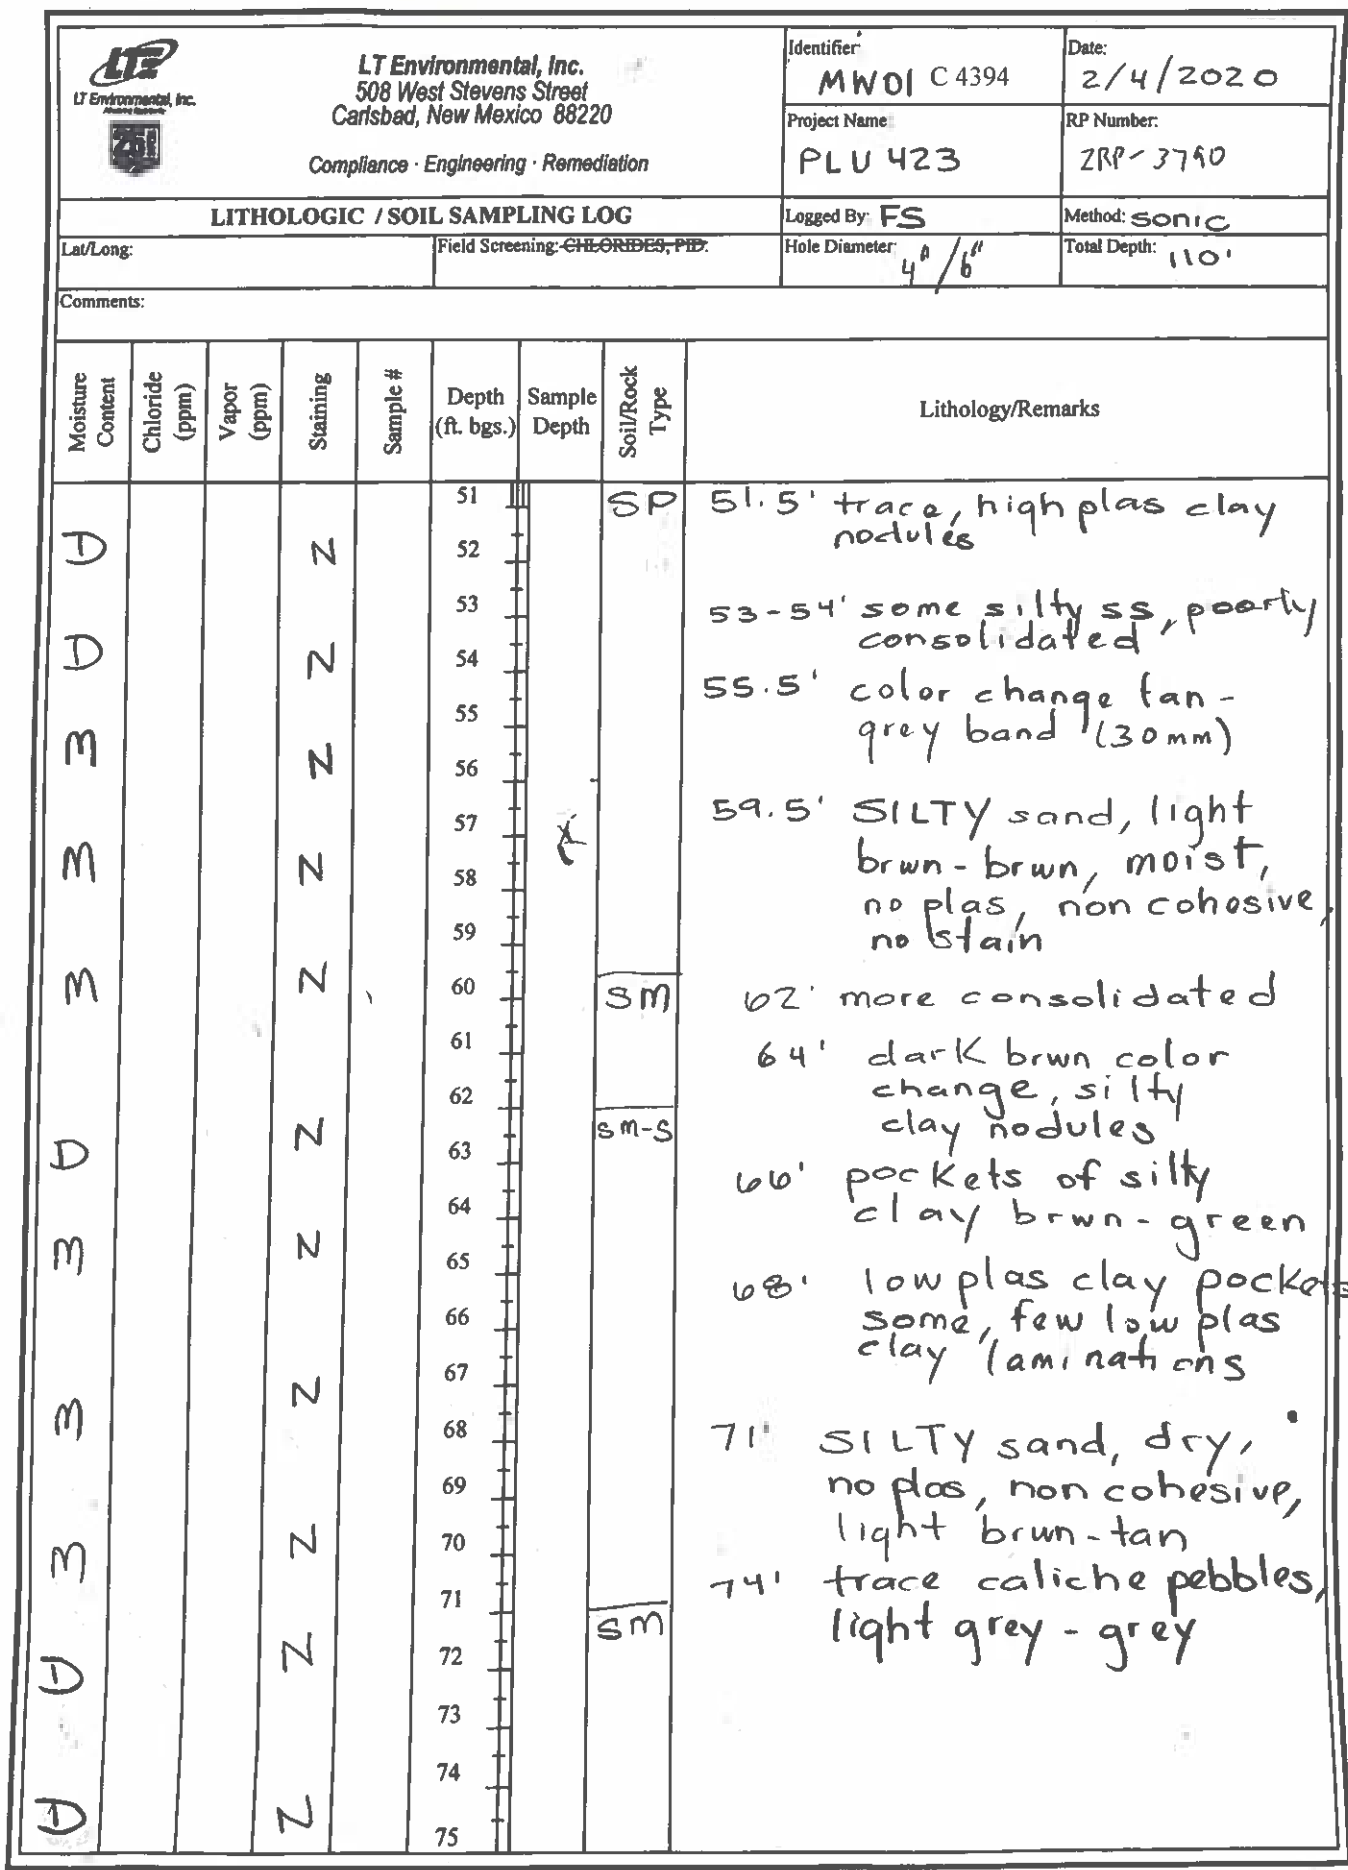 LTE
LT Environmental, Inc.
LT Environmental, Inc.
508 West Stevens Street
Carlsbad, New Mexico 88220
Compliance · Engineering · Remediation
Identifier:
MW01 C 4394
Date:
2/4/2020
Project Name:
PLU 423
RP Number:
2RP-3790
LITHOLOGIC / SOIL SAMPLING LOG
Logged By: FS
Method: sonic
Lat/Long:
Field Screening: CHLORIDES, PID.
Hole Diameter: 4"/6"
Total Depth: 110'
Comments:
Moisture Content
Chloride (ppm)
Vapor (ppm)
Staining
Sample #
Depth (ft. bgs.)
Sample Depth
Soil/Rock Type
Lithology/Remarks
51 SP 51.5' trace, high plas clay
nodules
D N 52
53 53-54' some silty ss, poorly
consolidated
D N 54
55.5' color change tan-
55 grey band (30mm)
M N 56
57 59.5' SILTY sand, light
M N 58 brwn-brwn, moist,
no plas, non cohesive,
59 no stain
M N 60 SM 62' more consolidated
61 64' dark brwn color
62 change, silty
D N 63 SM-S clay nodules
66' pockets of silty
64 clay brwn-green
M N 65
68' low plas clay pockets
66 some, few low plas
clay laminations
67
M N 68 71' SILTY sand, dry,
69 no plas, non cohesive,
M N 70 light brwn-tan
71 74' trace caliche pebbles,
SM light grey-grey
D N 72
73
74
D N 75